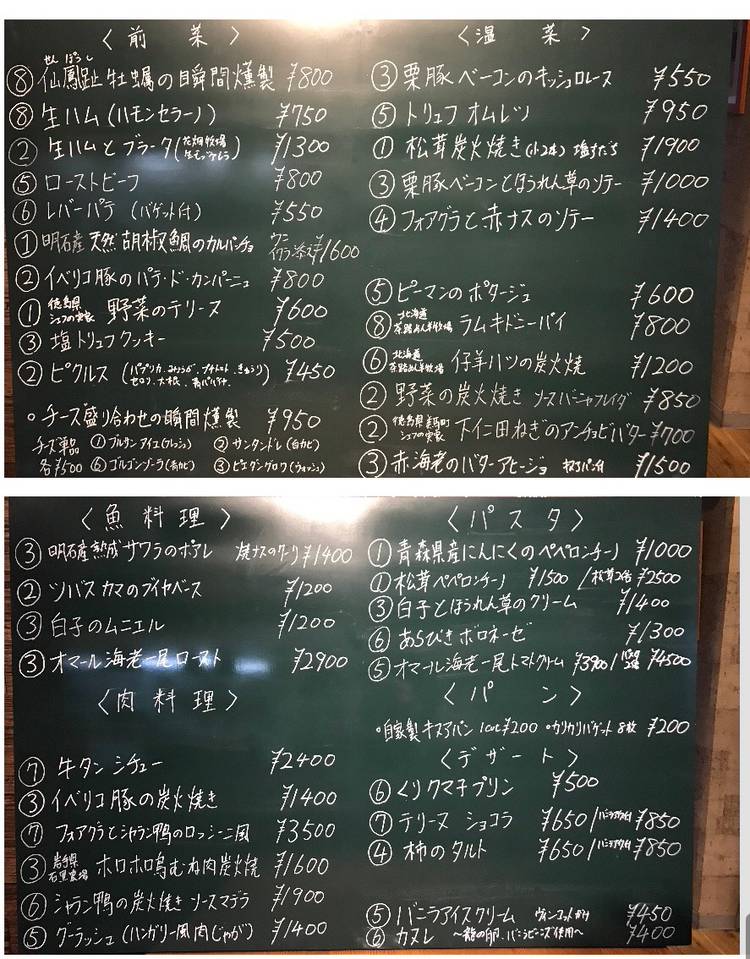 〈前菜〉
せんぽうし
⑧ 仙鳳趾 牡蠣の瞬間燻製 ¥800
⑧ 生ハム(ハモンセラーノ) ¥750
② 生ハムとブラータ(花畑牧場 生モッツァレラ) ¥1300
⑤ ローストビーフ ¥800
⑥ レバーパテ (バゲット付) ¥550
① 明石産 天然 胡椒鯛のカルパッチョ ウニ イクラ添え ¥1600
② イベリコ豚のパテ・ド・カンパーニュ ¥800
① 徳島県 シェフの実家 野菜のテリーヌ ¥600
③ 塩トリュフクッキー ¥500
② ピクルス (パプリカ、みょうが、プチトマト、きゅうり セロリ、大根、 ¥450
・チーズ盛り合わせの瞬間燻製 ¥950
チーズ単品 各¥500
① ブルサンアイユ(フレッシュ) ② サンタンドレ(白カビ)
⑥ ゴルゴンゾーラ(青カビ) ③ ピエダングロワ(ウォッシュ)
〈温菜〉
③ 栗豚ベーコンのキッシュロレーヌ ¥550
⑤ トリュフオムレツ ¥950
① 松茸炭火焼き(小2本) 塩すだち ¥1900
③ 栗豚ベーコンとほうれん草のソテー ¥1000
④ フォアグラと赤ナスのソテー ¥1400
⑤ ピーマンのポタージュ ¥600
⑧ 北海道 茶路めん羊牧場 ラムキドニーパイ ¥800
⑥ 北海道 茶路めん羊牧場 仔羊ハツの炭火焼 ¥1200
② 野菜の炭火焼き ソースバーニャフレイダ ¥850
② 徳島県美馬町 シェフの実家 下仁田ねぎのアンチョビバター ¥700
③ 赤海老のバターアヒージョ ¥1500
〈魚料理〉
③ 明石産熟成サワラのポアレ 焼ナスのクーリ ¥1400
② ツバス カマのブイヤベース ¥1200
③ 白子のムニエル ¥1200
③ オマール海老一尾ロースト ¥2900
〈肉料理〉
⑦ 牛タンシチュー ¥2400
③ イベリコ豚の炭火焼き ¥1400
⑦ フォアグラとシャラン鴨のロッシーニ風 ¥3500
③ 岩手県 石黒農場 ホロホロ鳥むね肉炭火焼 ¥1600
⑥ シャラン鴨の炭火焼き ソースマデラ ¥1900
⑤ グーラッシュ(ハンガリー風肉じゃが) ¥1400
〈パスタ〉
① 青森県産にんにくのペペロンチーノ ¥1000
① 松茸ペペロンチーノ ¥1500 / 松茸2倍 ¥2500
③ 白子とほうれん草のクリーム ¥1400
⑥ あらびきボロネーゼ ¥1300
⑤ オマール海老一尾トマトクリーム ¥3900 / ¥4500
〈パン〉
・自家製キヌアパン 1cut ¥200 ・カリカリバゲット 8枚 ¥200
〈デザート〉
⑥ くりクマチプリン ¥500
⑦ テリーヌショコラ ¥650 / バニラアイス付 ¥850
④ 柿のタルト ¥650 / バニラアイス付 ¥850
⑤ バニラアイスクリーム ヴィンコット付 ¥450
⑥ カヌレ 〜龍の卵、バニラビーンズ使用〜 ¥400